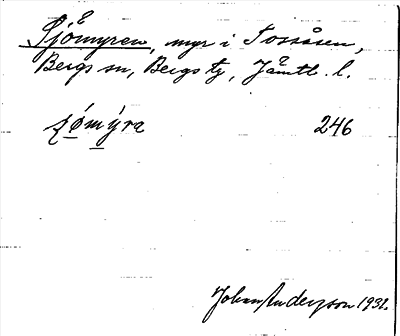 Sjömyren, myr i Tossåsen,
Bergs sn, Bergs tg, Jämtl. l.
ʂǿmýra 246
Johan Anderzon 1931.